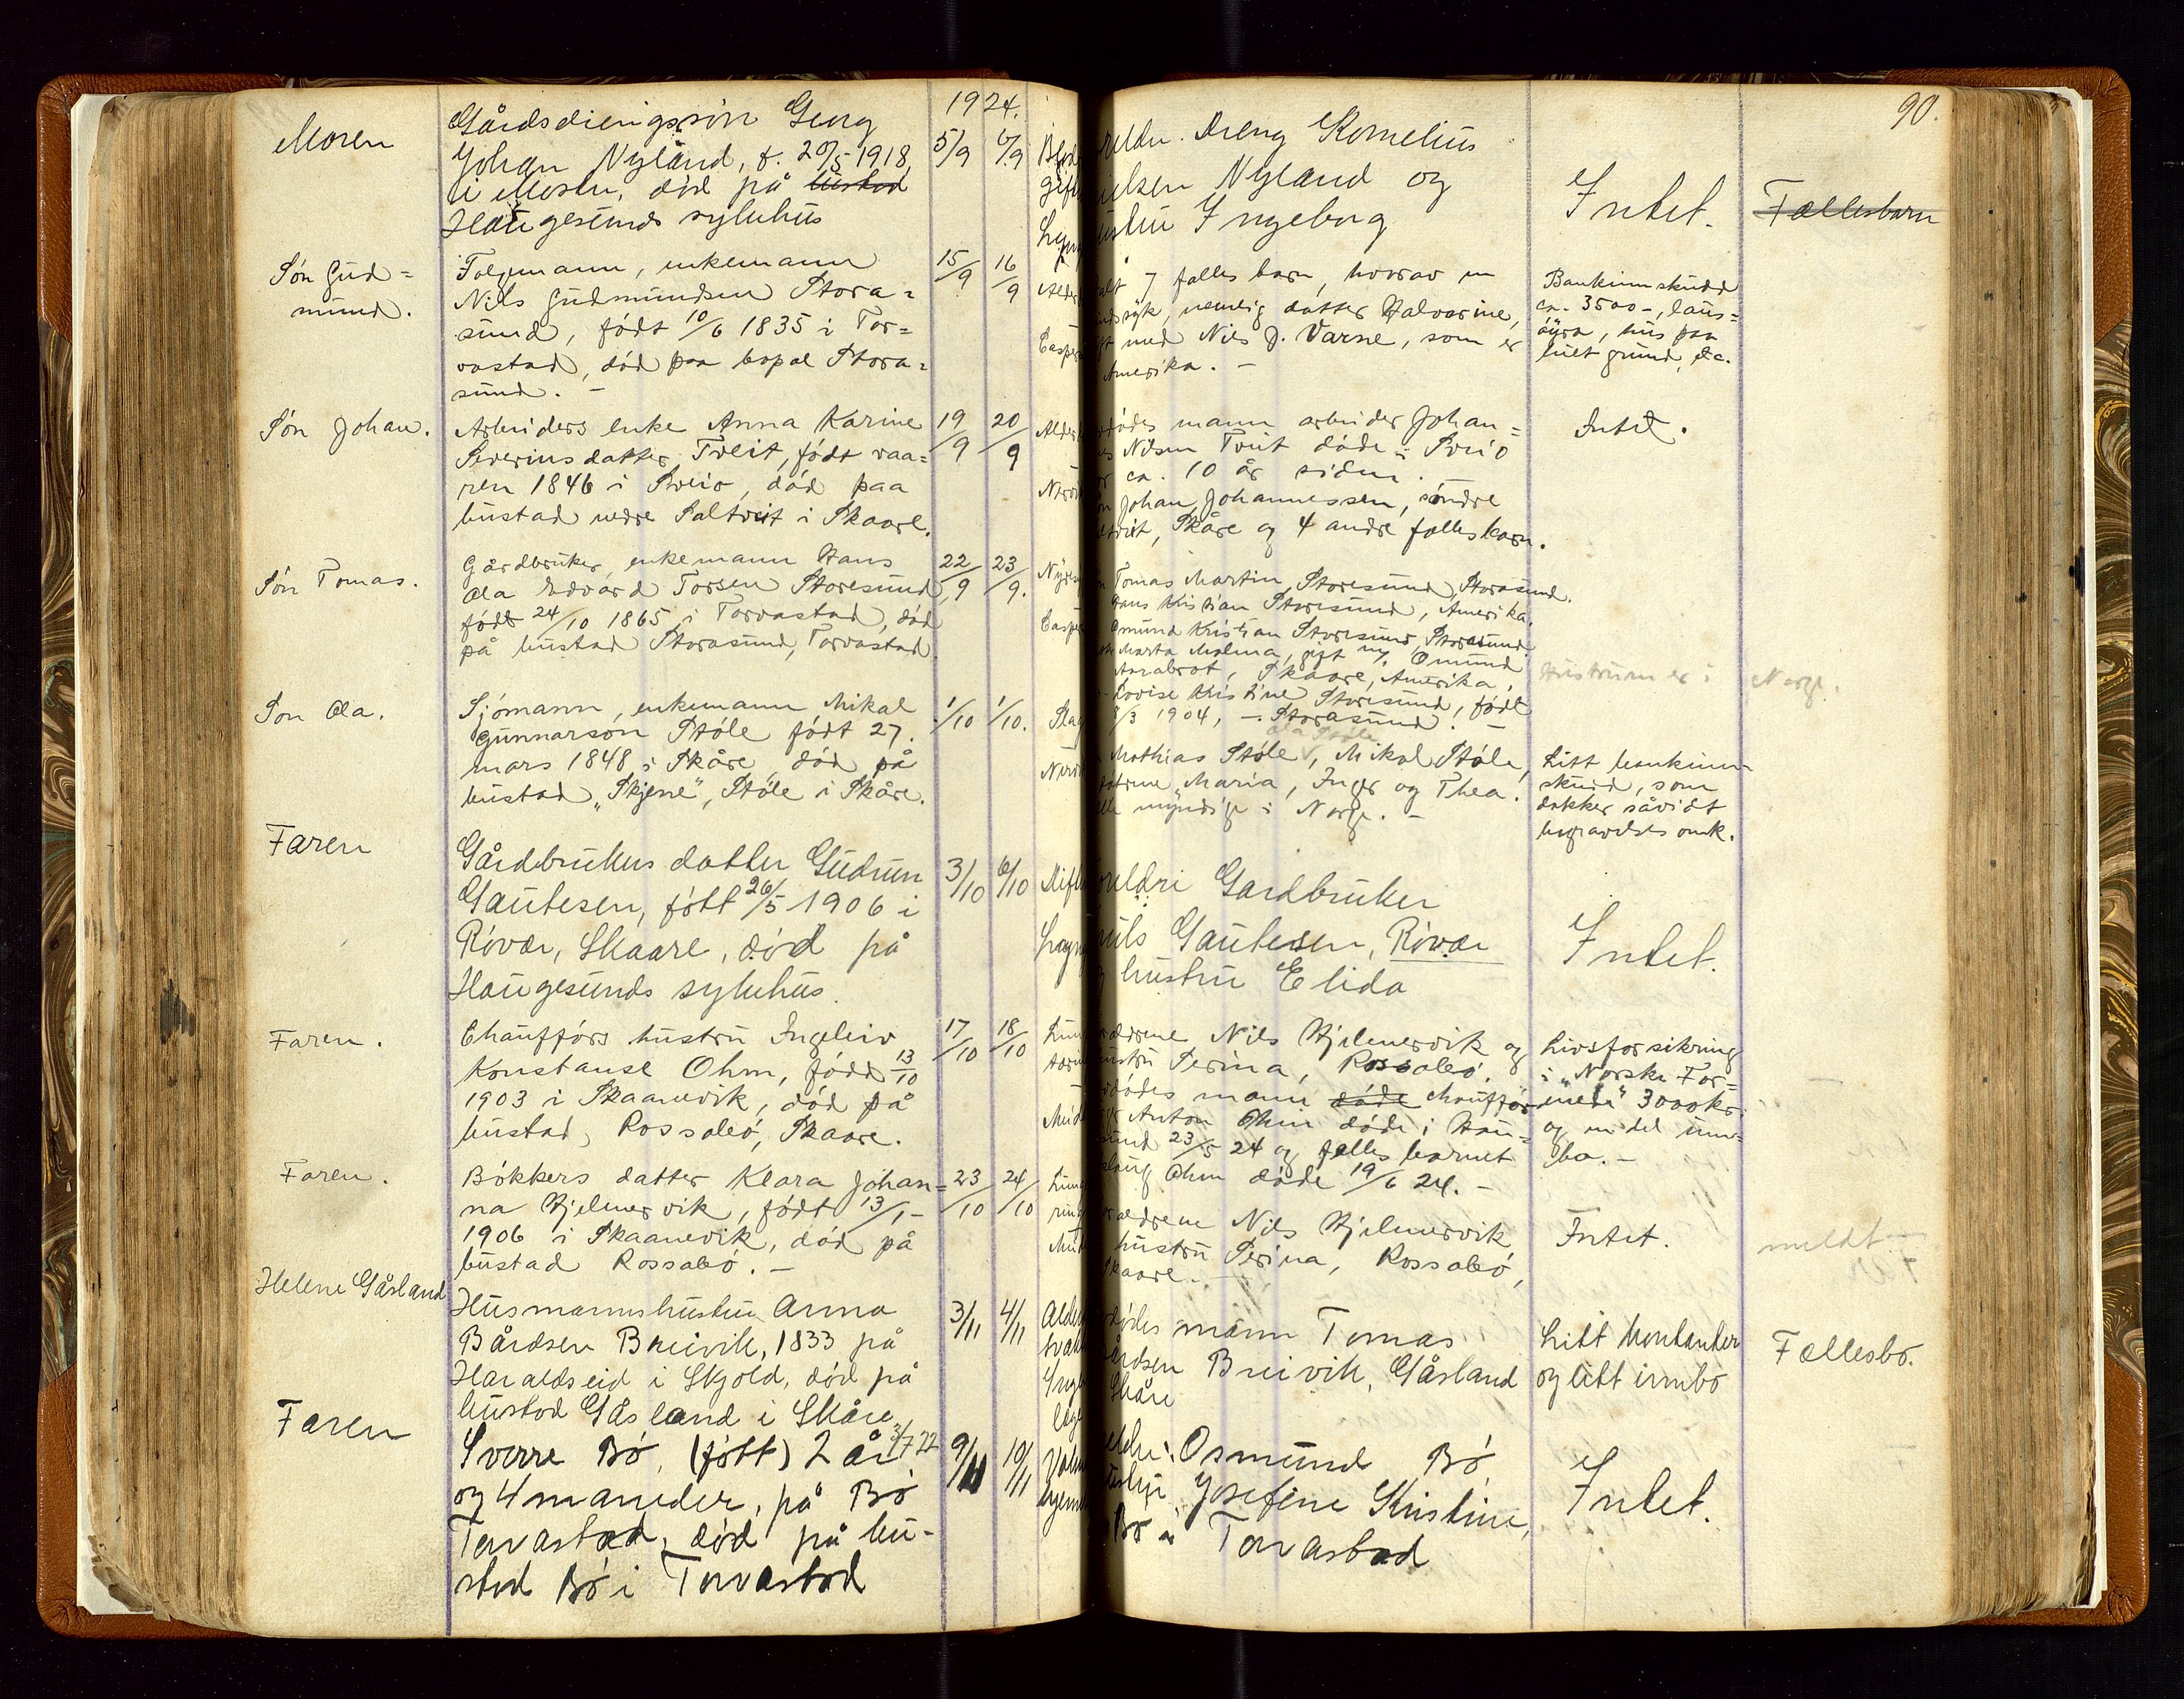 1924.
90.
Moren
Gårdsdrengssøn Georg
Johan Nyland, f. 20/5 1918,
i Moster, død på bustad
Haugesunds sykehus
5/9
6/9
Blod
gift
reldre. Dreng Kornelius
ielsen Nyland og
ustru Ingeborg
Intet.
Fællesbarn
Søn Gud=
mund.
Folgemann, enkemann
Nils Gudmundsen Stora=
sund, født 10/6 1835 i Tor=
vastad, død paa bopæl Stora=
sund. -
15/9
16/9
Alder
Casper
alt 7 fælles barn, hvorav en
ndssyk, nemlig datter Halvorine,
ft med Nils J. Varne, som er
Amerika. -
Bankinnskudd
ca. 3500-, laus=
øyra, hus paa
leiet grund, etc.
Søn Johan.
Arbeiders enke Anna Karine
Severinsdatter Tveit, født vaa=
ren 1846 i Sveio, død paa
bustad nedre Saltveit i Skaare.
19/9
20/9
Alder
dødes mann arbeider Johan=
es Nilsen Tveit døde i Sveio
r ca. 10 år siden. -
n Johan Johannessen, søndre
ltveit, Skåre og 4 andre fælles barn.
Intet.
Søn Tomas.
Gårdbruker, enkemann Hans
Ola Edvard Torsen Storesund,
født 24/10 1865 i Torvastad, død
på bustad Storasund, Torvastad.
22/9
23/9.
Nyres
Casper
n Tomas Martin Storesund, Storasund.
Hans Kristian Storesund, Amerika.
Omund Kristian Storesund, Storasund.
Marta Malina, gift m/ Omund
Aarabrot, Skaare, Amerika,
Lovise Kristine Storesund, født
8/3 1904, - Storasund. -
Hustruen er i Norge.
Søn Ola.
Sjømann, enkemann Mikal
Gunnarson Støle født 27.
mars 1848 i Skåre, død på
bustad "Skjene", Støle i Skåre.
1/10
1/10.
Slag
Ola Støle
Mathias Støle, Mikal Støle,
Maria, Inger og Thea.
lle myndige i Norge. -
Litt bankinn-
skudd, som
dekker såvidt
begravelses omk.
Faren
Gårdbrukers datter Gudrun
Gautesen, født 26/5 1906 i
Røvær, Skaare, død på
Haugesunds sykehus.
3/10
6/10
oreldri Gardbruker
nils Gautesen, Røvær
g hustru Elida
Intet.
Faren.
Chaufførs hustru Ingeleiv
Konstanse Ohm, født 13/10
1903 i Skaanevik, død på
bustad, Rossabø, Skaare.
17/10
18/10
rældrene Nils Hjelmervik og
ustru Serina, Rossabø.
dødes mann døde chauffør
Anton Ohm døde i Hau=
sund 23/5 24 og fælles barnet
slaug Ohm døde 19/6 24. -
Livsforsikring
i "Norske For=
enede" 3000kr.
og en del inn=
bo. -
Faren.
Bøkkers datter Klara Johan=
na Hjelmervik, født 13/1-
1906 i Skaanevik, død på
bustad Rossabø. -
23/10
24/10
rældrene Nils Hjelmervik
hustru Serina, Rossabø,
Skaare. -
Intet.
meldt
Helene Gåsland
Husmannshustru Anna
Bårdsen Breivik, 1833 på
Haraldseid i Skjold, død på
bustad Gåsland i Skåre
3/11
4/11
Alder
svak
dødes mann Tomas
årdsen Breivik, Gåsland
Skåre
Litt kontanter
og litt innbo
Fællesbo.
Faren
Sverre Bø, (født) 2 år 3/7 22
og 4 maneder, på Bø
Torvastad, død på bu-
stad Bø i Torvastad
9/11
10/11
eldre: Osmund Bø
Josefine Kristine,
Bø i Torvastad
Intet.